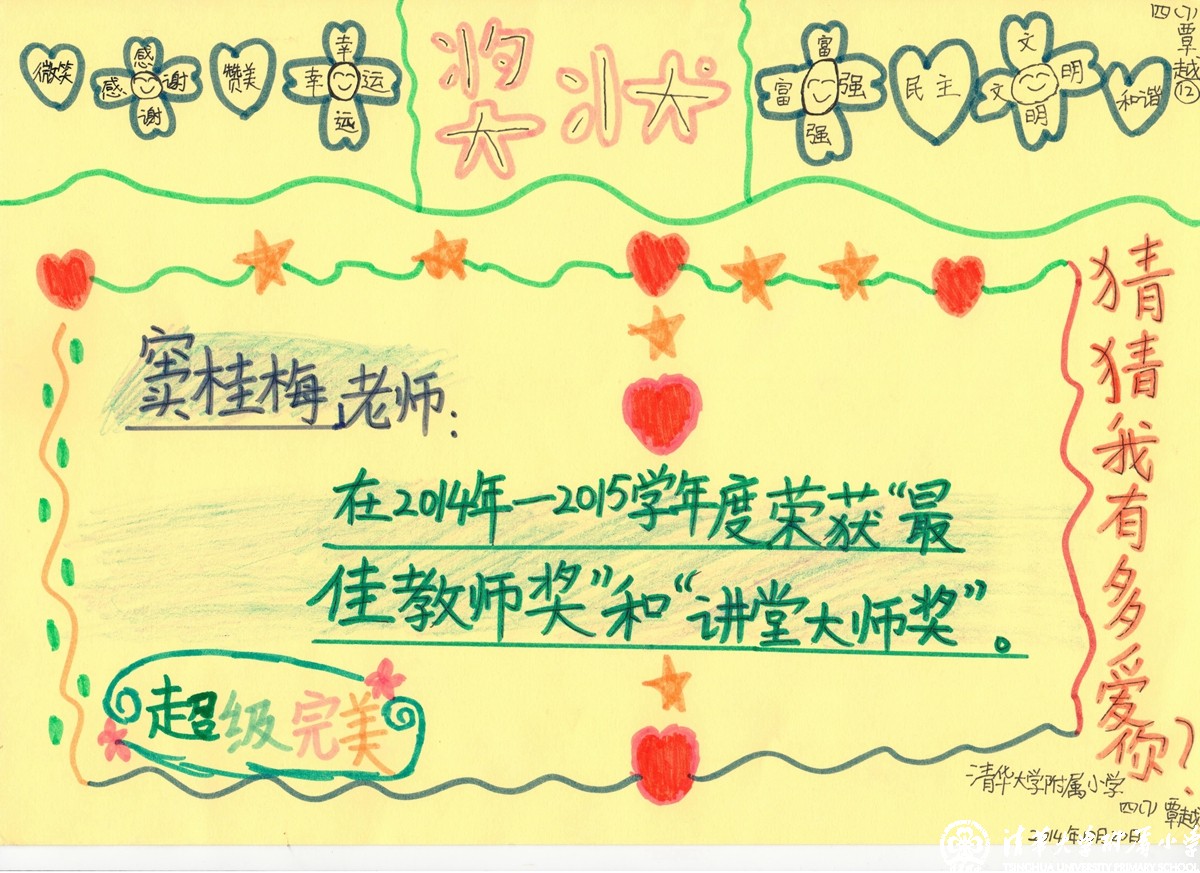 四(7)
覃越
12
微笑
感感谢谢
赞美
幸幸运运
奖状
富富强强
民主
文文明明
和谐
窦桂梅老师：
在2014年—2015学年度荣获“最
佳教师奖”和“讲堂大师奖”。
超级完美
猜猜我有多爱你？
清华大学附属小学
四(7) 覃越
清华大学附属小学
TSINGHUA UNIVERSITY PRIMARY SCHOOL